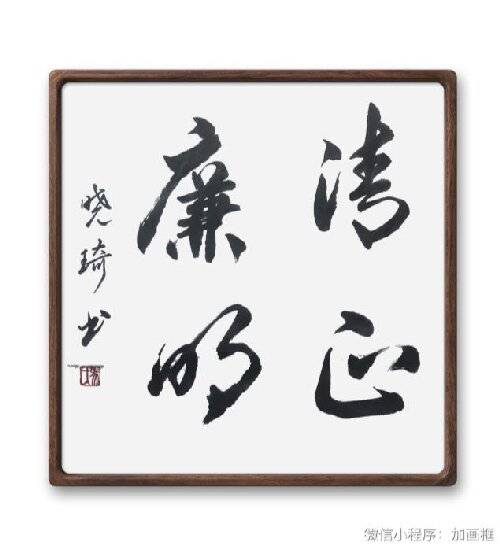 清正
廉明
晓琦书
微信小程序：加画框